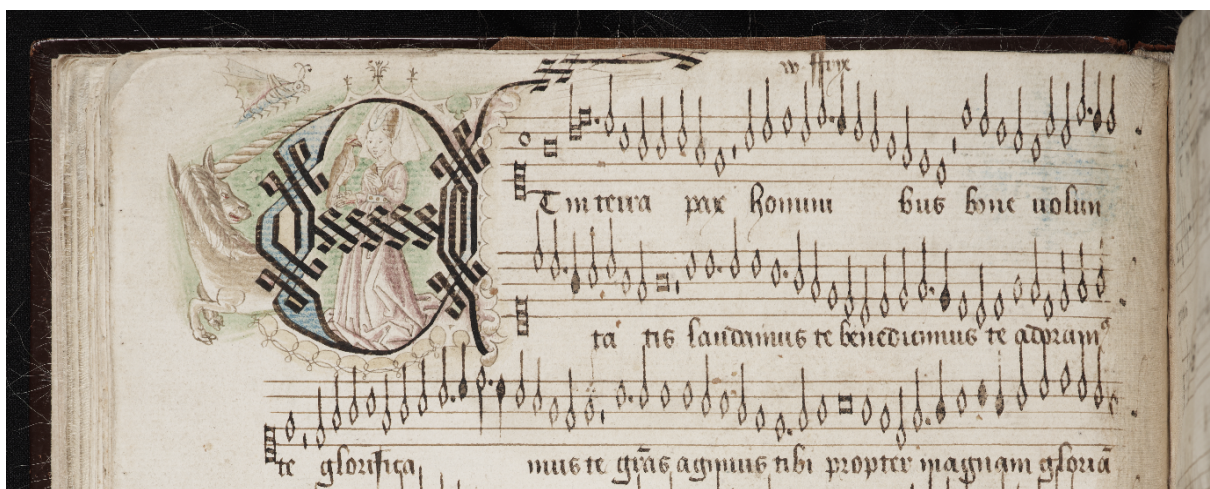 w ffrye
ET in terra pax homini bus bone uolun
ta tis laudamus te benedicimus te adoramꝰ
te glorifica mus te grãs agimus tibi propter magnam gloriã